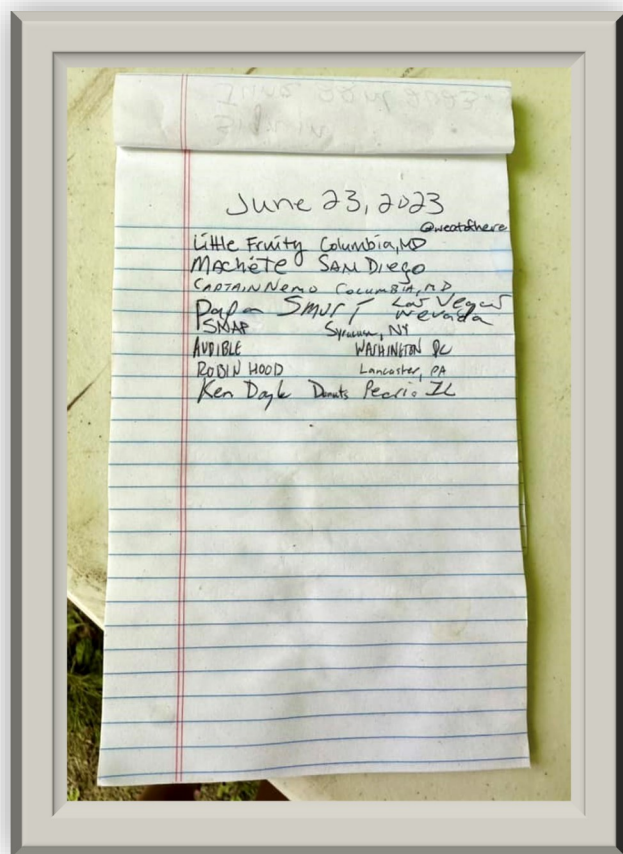 June 23, 2023
@weatofhere
Little Fruity Columbia, MD
Machete SAN Diego
CAPTAIN NEMO COLUMBIA, MD
Papa Smurf Las Vegas
Nevada
SNAP Syracuse, NY
AUDIBLE WASHINGTON DC
ROBIN HOOD Lancaster, PA
Ken Donuts Peoria IL